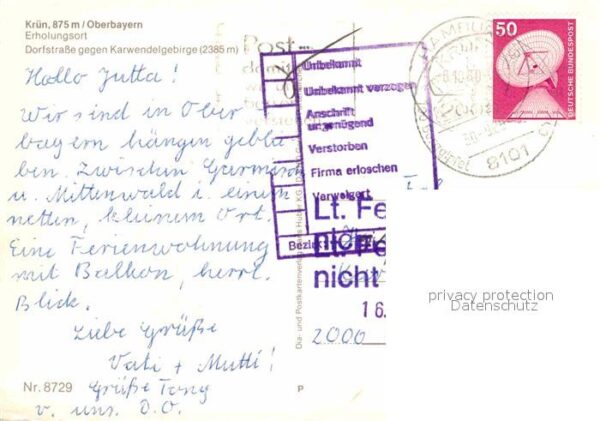 Krün, 875 m / Oberbayern
Erholungsort
Dorfstraße gegen Karwendelgebirge (2385 m)
Hallo Jutta!
Wir sind in Ober
bayern hängen geblie
ben. Zwischen Garmisch
u. Mittenwald i. einem
netten, kleinem Ort.
Eine Ferienwohnung
mit Balkon, herrl.
Blick.
Liebe Grüße
Vati + Mutti!
Grüße
v. uns.
Nr. 8729
P
Dia- und Postkartenverlag Huber KG
Post
Unbekannt
Unbekannt verzogen
Anschrift
ungenügend
Verstorben
Firma erloschen
Verweigert
Bezirk
Lt. Fe
nicht
Lt. Fe
nicht
16.
2000
50
DEUTSCHE BUNDESPOST
8101
privacy protection
Datenschutz